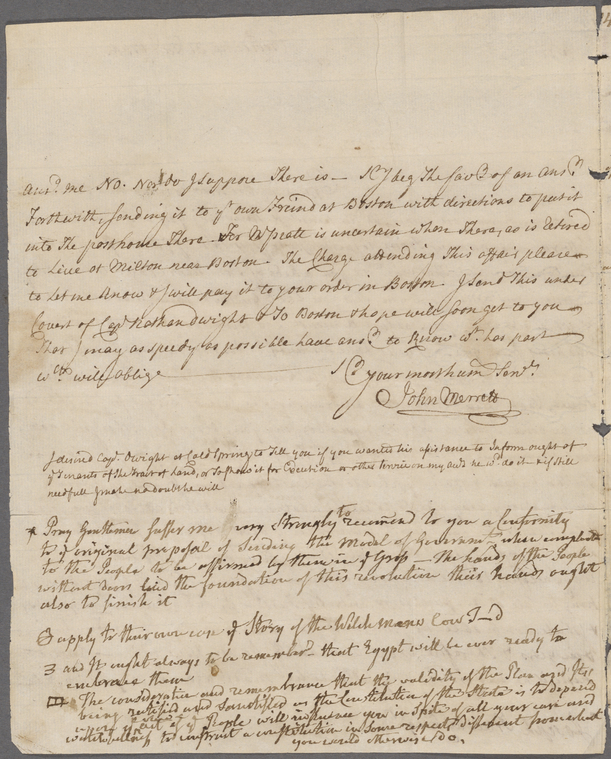 Answ.d me No. Nor do I Suppose There is — S.r I beg The fav.r of an Ans.r
Forthwith, Sending it to y.r own Friend at Boston with directions to put it
into The posthouse There. For M.r Pratt is uncertain when There, as is Retired
to Live at Milton near Boston. The Charge attending This affair please
to Let me Know & I will pay it to your order in Boston. I Send This under
Covert of Cap.t Nathan Dwight & To Boston & hope will Soon get to you
That I may as speedy as possible have ans.r to Know w.t has past
w.ch will oblige
S.r your most hum. Serv.t
John Merrett
I desired Cap.t Dwight at Cold Spring to Tell you if you wanted his assistance to Inform
y.e Tenants of the Tract of Land, or To for Execution or other Service on my acc.t he w.d do it & if Still
needfull no doubt he will
Pray Gentlemen Suffer me very Strongly to recomend to you a Conformity
to y.e original proposal of Sending the Model of Goverment when compleated
to the People to be affirmed by them in y.e Gross — the hands of the People
without doors laid the foundation of this revolution their hands ought
also to finish it
apply to their own case y.e Story of the Welch mans Cow T—d
3 and It ought always to be remember.d that Egypt will be ever ready to
embrace them
The consideration and remembrance that the validity of the Plan and Its
being ratified and Sanctified as the Constitution of the State is to depend
upon y.e of y.e People will influence you in Spite of all your care and
to construct a constitution in Some respects different from what
you would otherwise do.